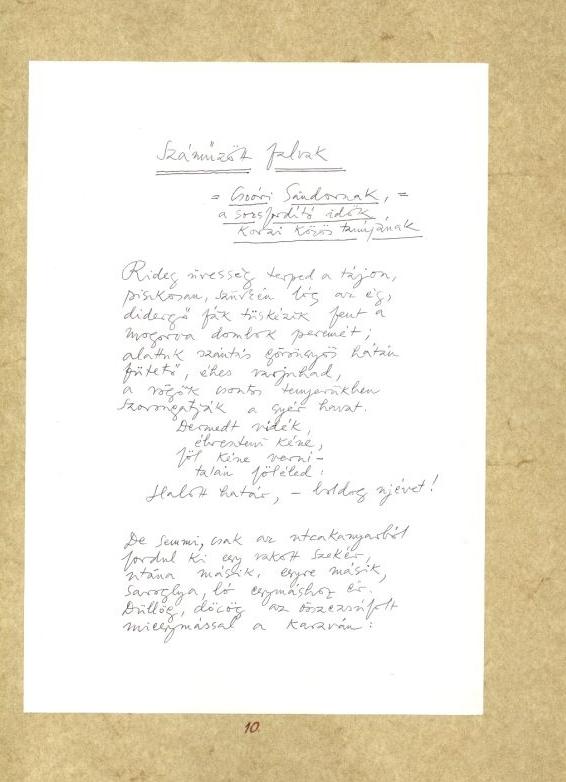 Száműzött falvak
= Csoóri Sándornak, =
a sorsfordító idők
korai közös tanújának
Rideg üresség terped a tájon,
piszkosan, szürkén lóg az ég,
didergő fák tüskézik fent a
mogorva dombok peremét;
alattuk szántás göröngyös hátán
fütető, éhes varjuhad,
a rögök csontos tenyerükben
szorongatják a gyér havat.
Dermedt vidék,
ébreszteni kéne,
föl kéne verni –
talán föléled:
Halott határ, – boldog ujévet!
De semmi, csak az utcakanyarból
fordul ki egy rakott szekér,
utána másik, egyre másik,
saroglya, ló egymáshoz ér.
Düllög, döcög az összezsúfolt
a karaván:
10.